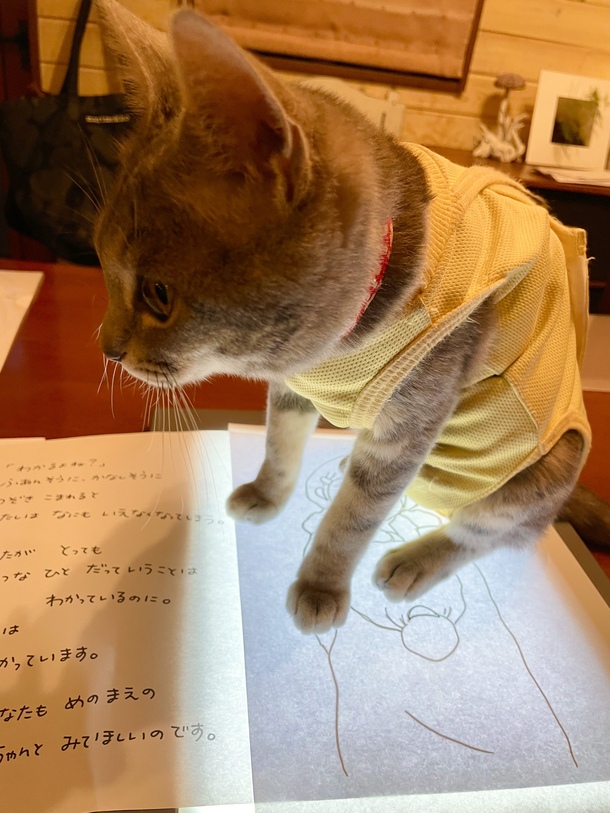 「わかるよね?」
ふあんそうに、かなしそうに
つぎ こまれると
たしは なにも いえなくなってしまう。
たがとっても
つな ひと だっていうことは
わかっているのに。
は
かっています。
なたも めのまえの
ちゃんと みてほしいのです。